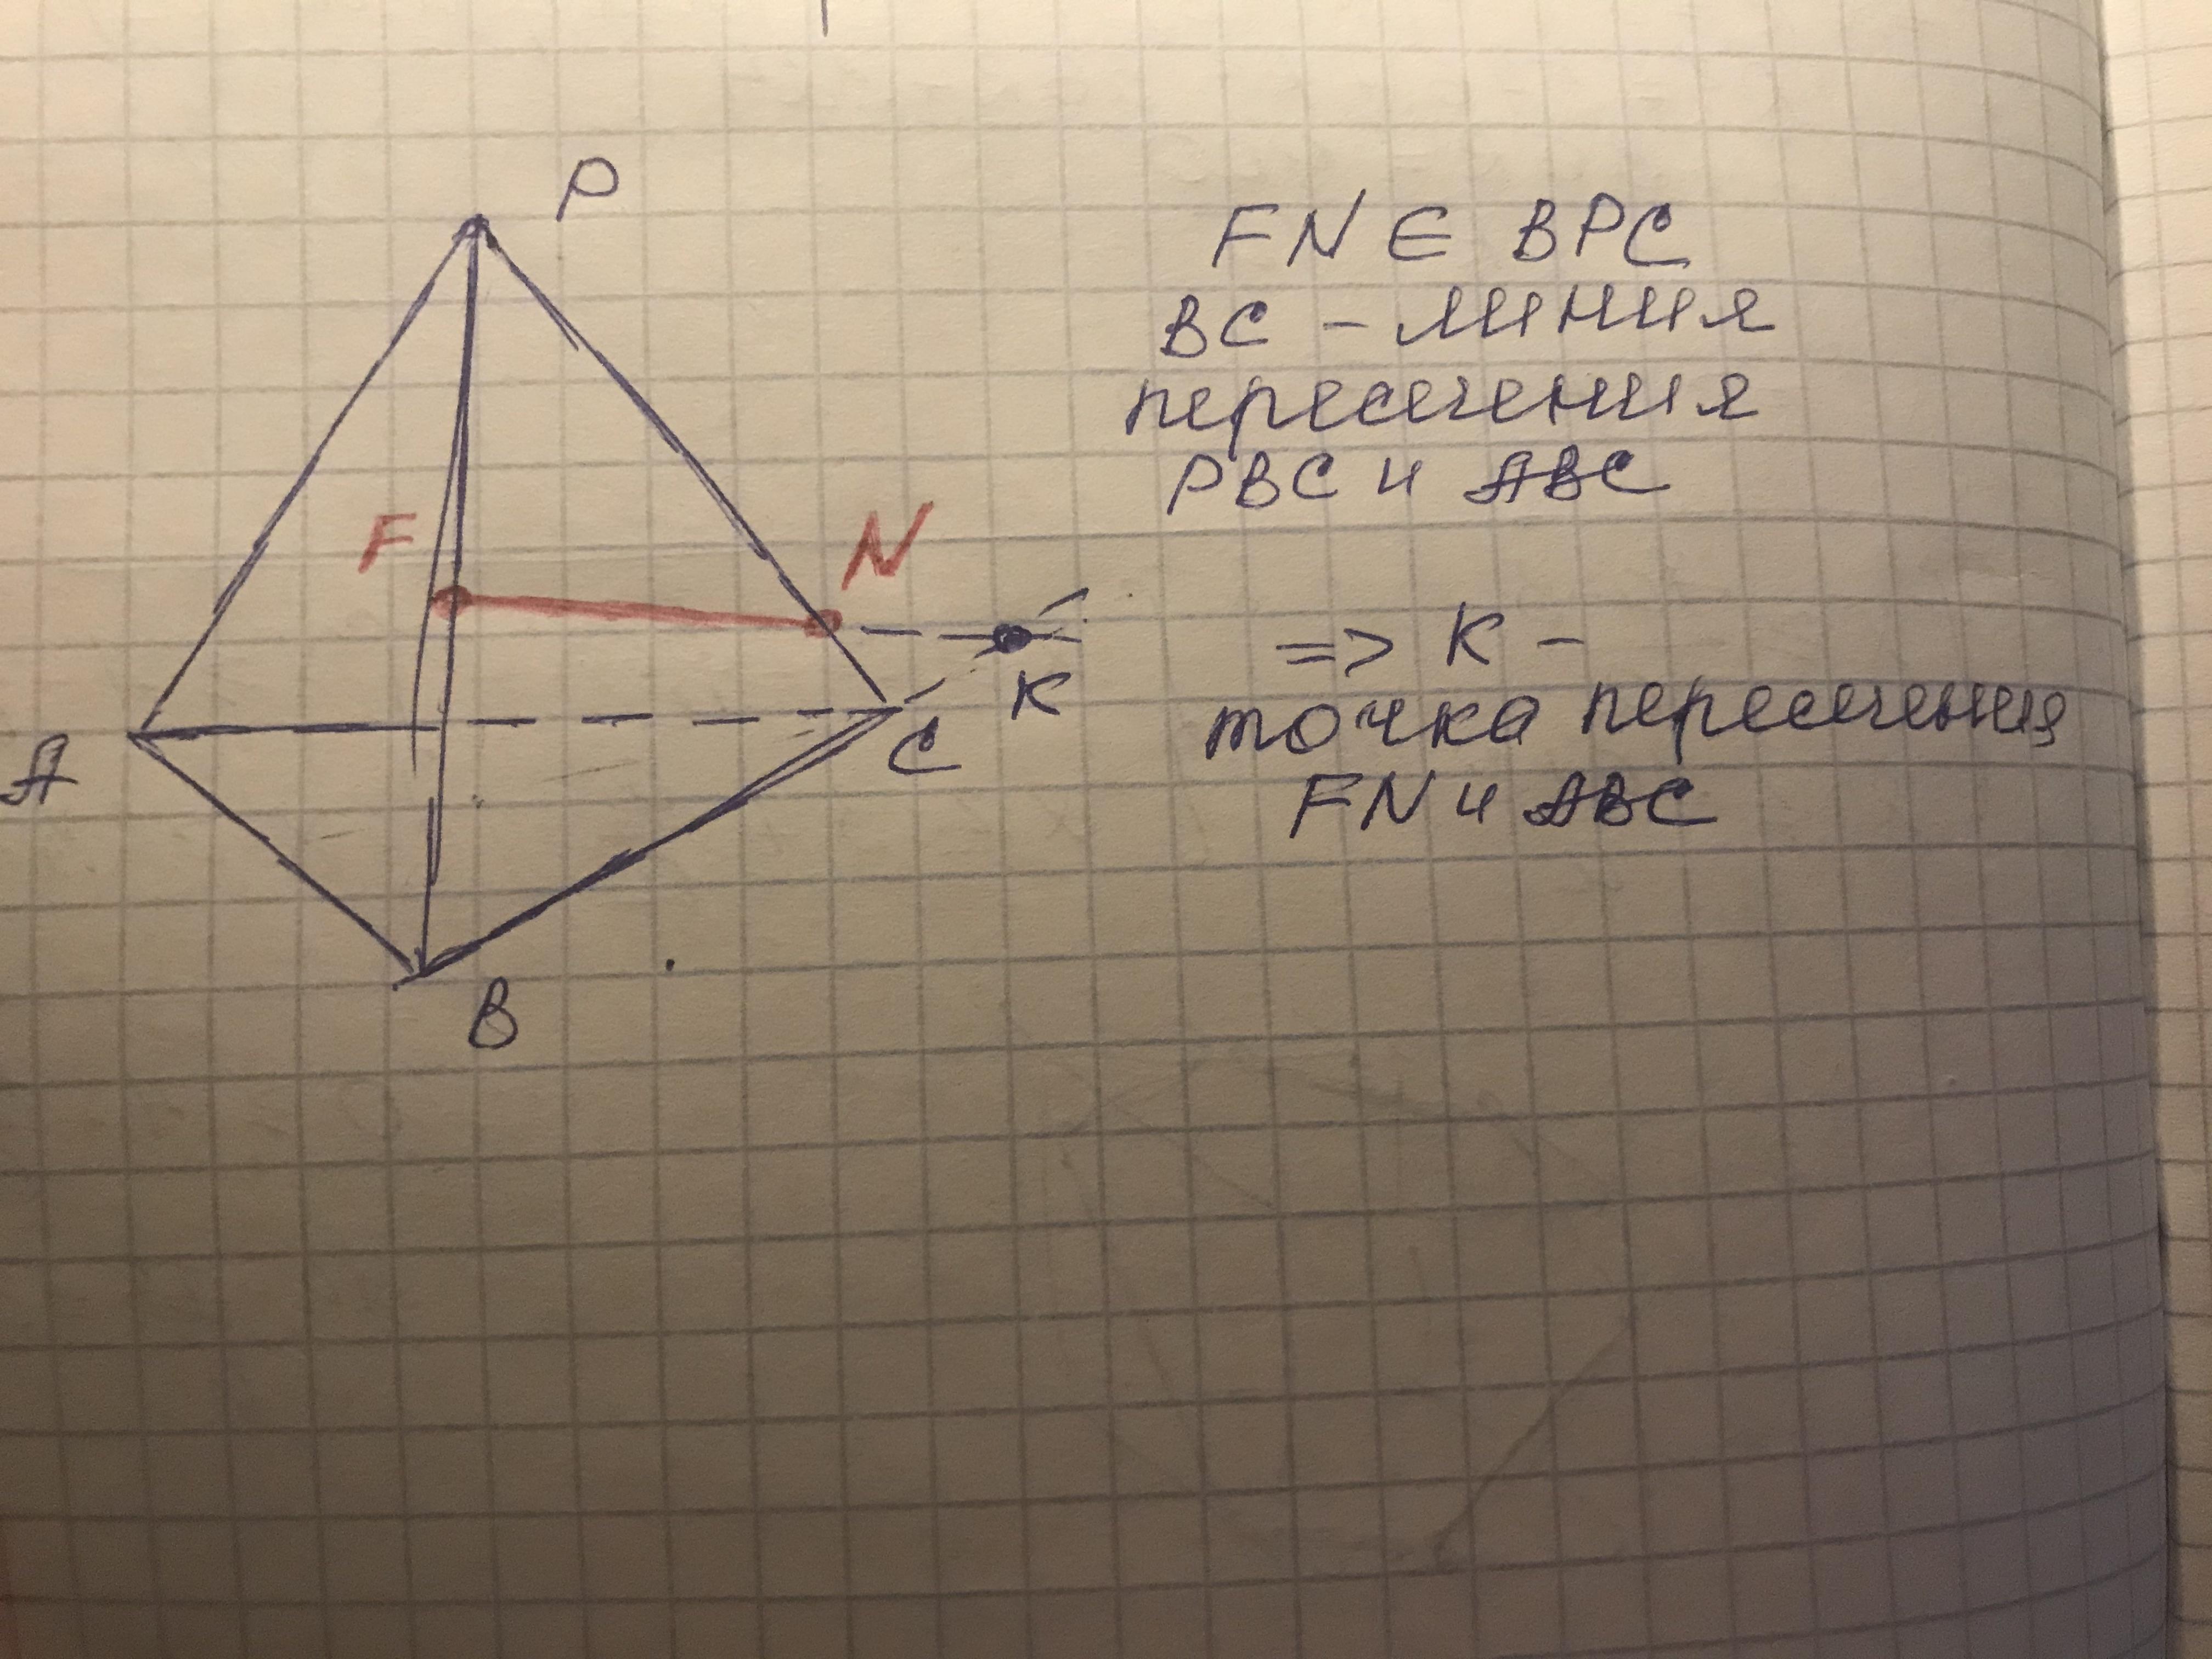 P
FN ∈ BPC
BC - линия
пересечения
PBC и ABC
F
N
=> K -
K
точка пересечения
A
C
FN и ABC
B